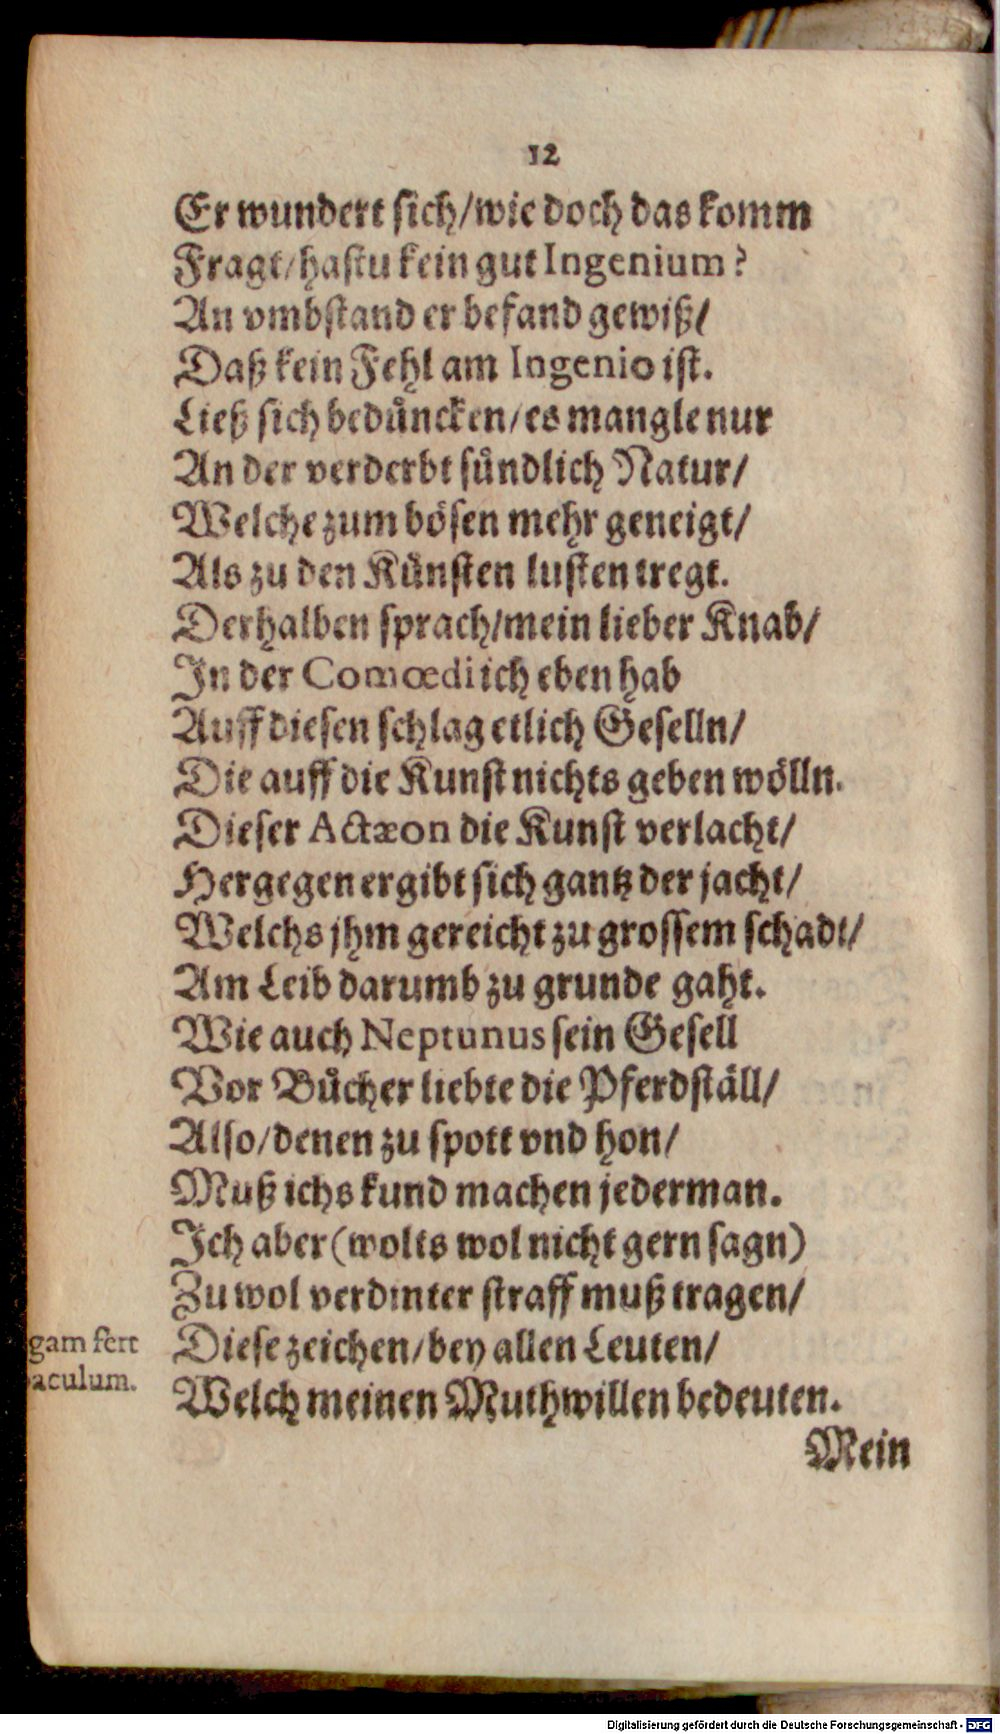 12
Er wundert sich/wie doch das komm
Fragt/hastu kein gut Ingenium?
An vmbstand er befand gewiß/
Daß kein Fehl am Ingenio ist.
Ließ sich beduͤncken/es mangle nur
An der verderbt suͤndlich Natur/
Welche zum boͤsen mehr geneigt/
Als zu den Kuͤnsten lusten tregt.
Derhalben sprach/mein lieber Knab/
In der Comœdi ich eben hab
Auff diesen schlag etlich Geselln/
Die auff die Kunst nichts geben woͤlln.
Dieser Actæon die Kunst verlacht/
Hergegen ergibt sich gantz der jacht/
Welchs jhm gereicht zu grossem schadt/
Am Leib darumb zu grunde gaht.
Wie auch Neptunus sein Gesell
Vor Buͤcher liebte die Pferdstaͤll/
Also/denen zu spott vnd hon/
Muß ichs kund machen jederman.
Ich aber (wolts wol nicht gern sagn)
Zu wol verdinter straff muß tragen/
gam fert Diese zeichen/bey allen Leuten/
aculum. Welch meinen Muthwillen bedeuten.
Mein
Digitalisierung gefördert durch die Deutsche Forschungsgemeinschaft - DFG